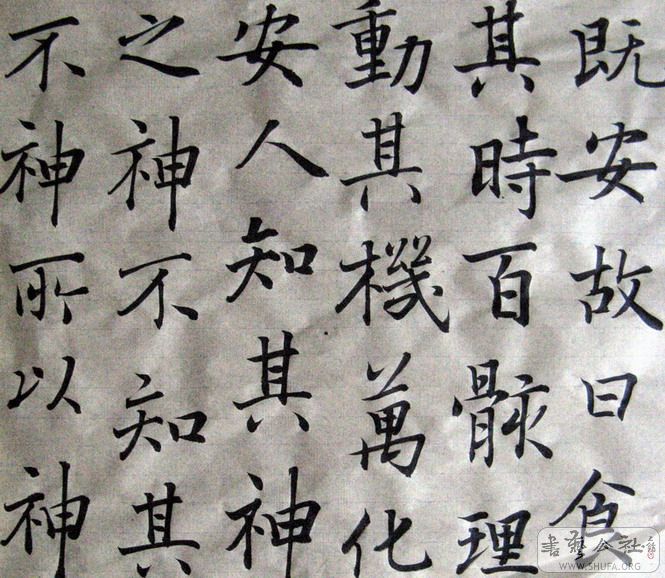 既安故曰食
其時百骸理
動其機萬化
安人知其神
之神不知其
不神所以神
書藝公社
WWW.SHUFA.ORG